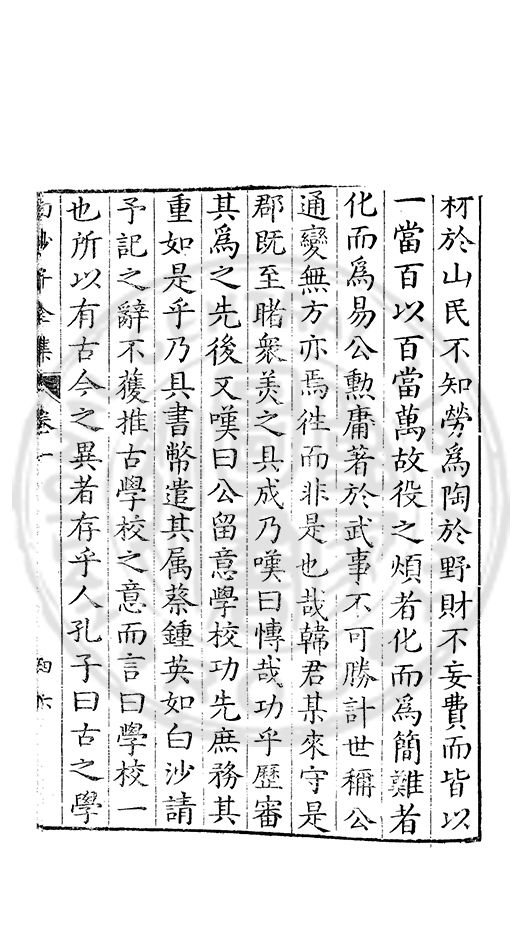 材於山民不知勞爲陶於野財不妄費而皆以
一當百以百當萬故役之煩者化而爲簡難者
化而爲易公勲庸著於武事不可勝計世稱公
通變無方亦焉徃而非是也哉韓君某來守是
郡既至睹衆美之具成乃嘆曰愽哉功乎歷審
其爲之先後又嘆曰公留意學校功先庶務其
重如是乎乃具書幣遣其属蔡鍾英如白沙請
予記之辭不獲推古學校之意而言曰學校一
也所以有古今之異者存乎人孔子曰古之學
白沙子全集 卷一